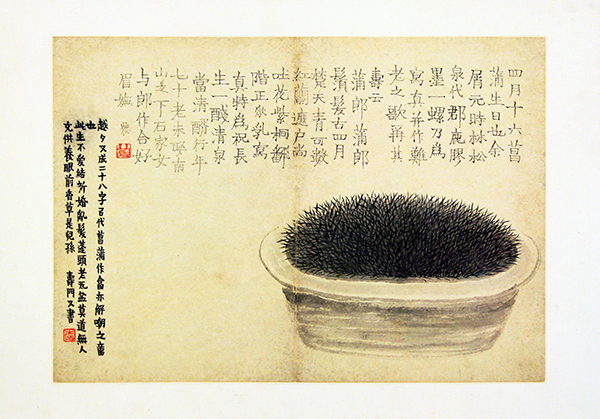 四月十六菖
蒲生日也余
屑元時林松
泉代郡鹿膠
墨一螺乃為
寫真并作難
老之歌稱其
壽云
蒲郎蒲郎
鬚髮古四月
楚天青可數
紅蘭遮戶尚
吐花紫桐翻
階正飲乳寫
真特為祝長
生一醆清泉
當清醑行年
七十老未娶南
山之下石家女
与郎作合好
眉嫵
越夕又成二十八字代菖蒲作答亦解嘲之意
也
此生不愛結新婚亂髮蓬頭老瓦盆莫道無人
供養眼前香草是兒孫 壽門又書